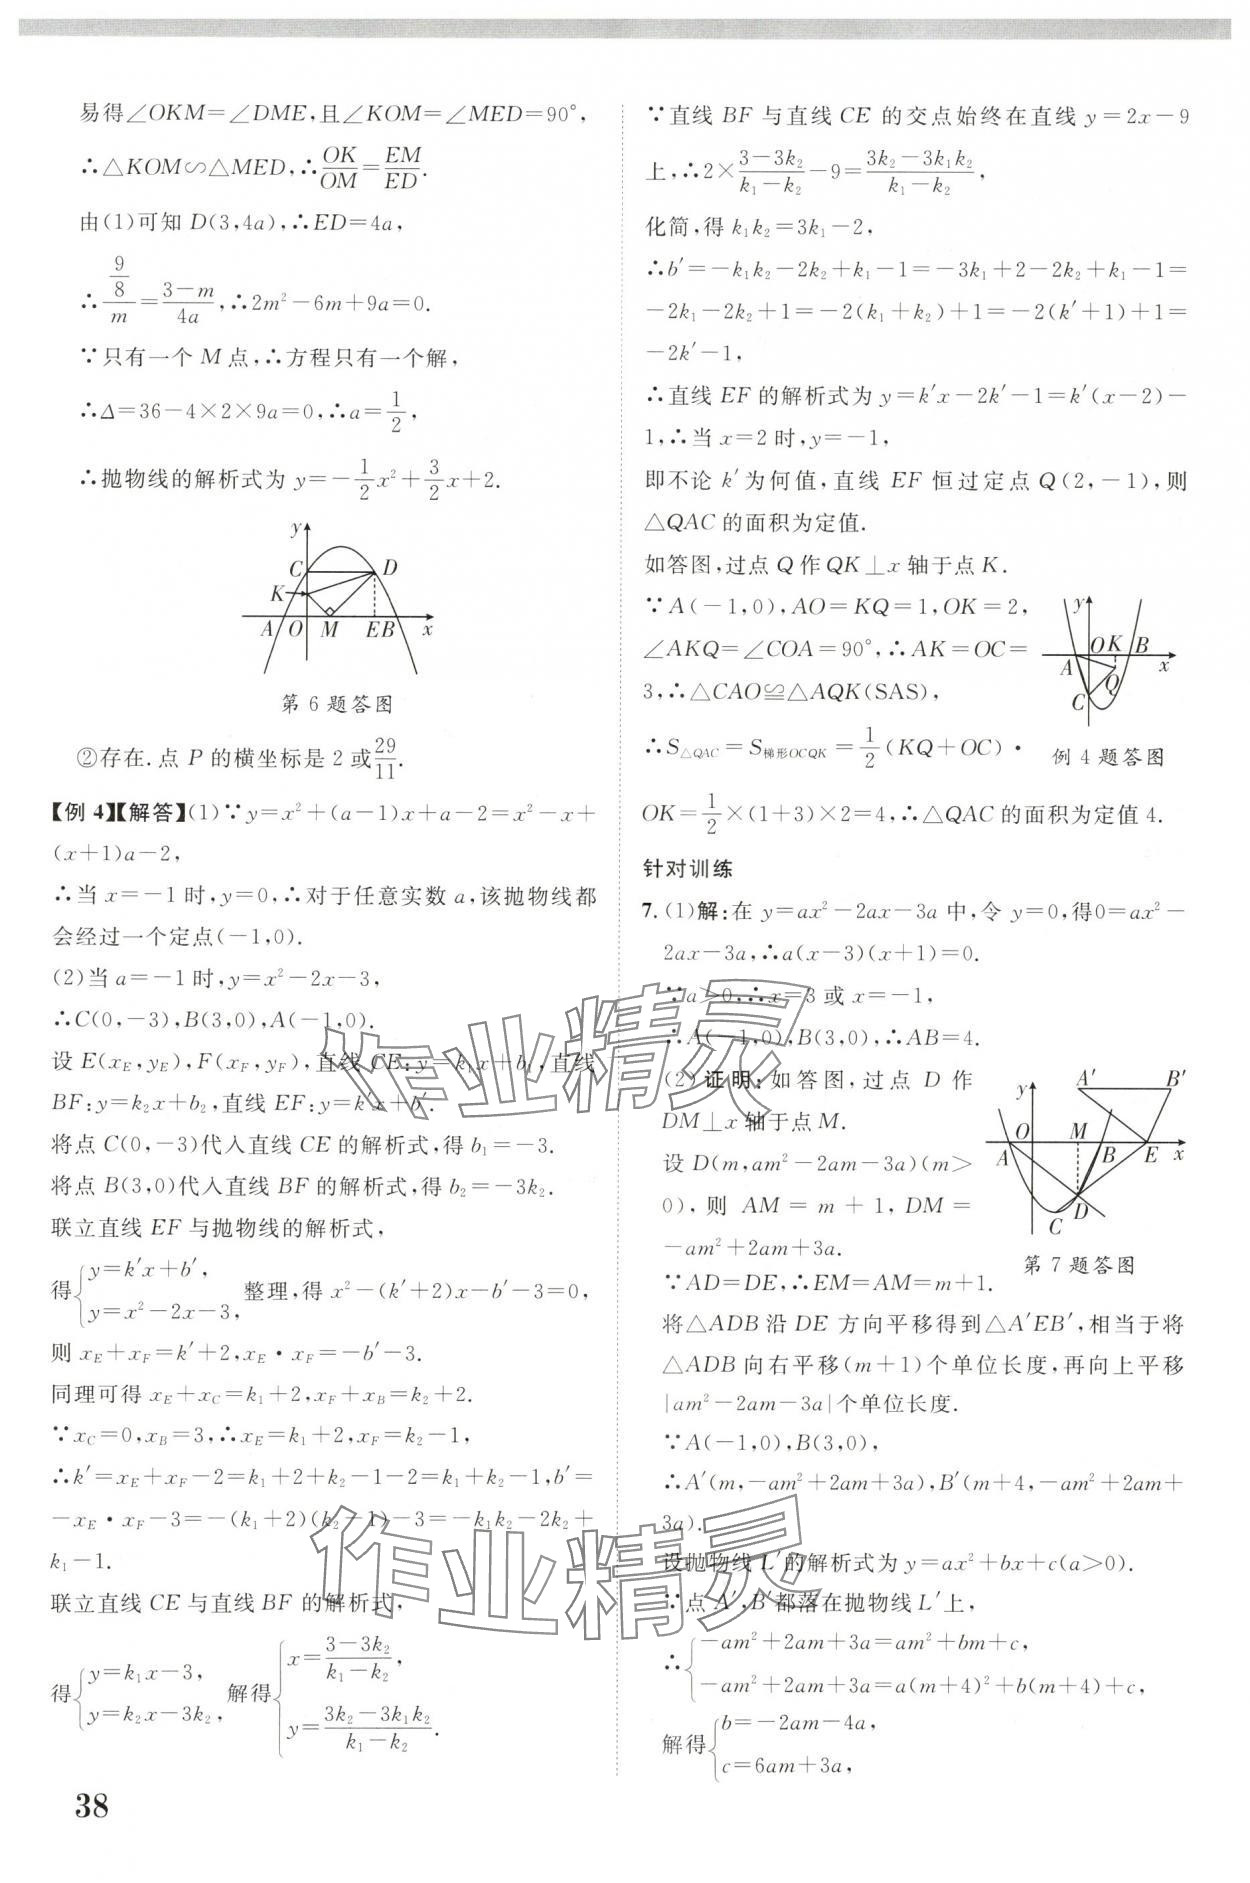 易得∠OKM=∠DME,且∠KOM=∠MED=90°,
∴△KOM∽△MED,∴OK/OM=EM/ED.
由(1)可知 D(3,4a),∴ED=4a,
∴(9/8)/m=(3-m)/4a,∴2m²-6m+9a=0.
∵只有一个 M 点,∴方程只有一个解,
∴Δ=36-4×2×9a=0,∴a=1/2,
∴抛物线的解析式为 y=-1/2x²+3/2x+2.
y
C D
K
A O M E B x
第 6 题答图
②存在.点 P 的横坐标是 2 或29/11.
【例 4】【解答】(1)∵y=x²+(a-1)x+a-2=x²-x+
(x+1)a-2,
∴当 x=-1 时,y=0,∴对于任意实数 a,该抛物线都
会经过一个定点(-1,0).
(2)当 a=-1 时,y=x²-2x-3,
∴C(0,-3),B(3,0),A(-1,0).
设 E(x_E,y_E),F(x_F,y_F),直线 CE:y=k₁x+b₁,直线
BF:y=k₂x+b₂,直线 EF:y=k′x+b′.
将点 C(0,-3)代入直线 CE 的解析式,得 b₁=-3.
将点 B(3,0)代入直线 BF 的解析式,得 b₂=-3k₂.
联立直线 EF 与抛物线的解析式,
得{y=k′x+b′, y=x²-2x-3, 整理,得 x²-(k′+2)x-b′-3=0,
则 x_E+x_F=k′+2,x_E·x_F=-b′-3.
同理可得 x_E+x_C=k₁+2,x_F+x_B=k₂+2.
∵x_C=0,x_B=3,∴x_E=k₁+2,x_F=k₂-1,
∴k′=x_E+x_F-2=k₁+2+k₂-1-2=k₁+k₂-1,b′=
-x_E·x_F-3=-(k₁+2)(k₂-1)-3=-k₁k₂-2k₂+
k₁-1.
联立直线 CE 与直线 BF 的解析式,
得{y=k₁x-3, y=k₂x-3k₂, 解得{x=(3-3k₂)/(k₁-k₂), y=(3k₂-3k₁k₂)/(k₁-k₂).
38
∵直线 BF 与直线 CE 的交点始终在直线 y=2x-9
上,∴2×(3-3k₂)/(k₁-k₂)-9=(3k₂-3k₁k₂)/(k₁-k₂),
化简,得 k₁k₂=3k₁-2,
∴b′=-k₁k₂-2k₂+k₁-1=-3k₁+2-2k₂+k₁-1=
-2k₁-2k₂+1=-2(k₁+k₂)+1=-2(k′+1)+1=
-2k′-1,
∴直线 EF 的解析式为 y=k′x-2k′-1=k′(x-2)-
1,∴当 x=2 时,y=-1,
即不论 k′为何值,直线 EF 恒过定点 Q(2,-1),则
△QAC 的面积为定值.
如答图,过点 Q 作 QK⊥x 轴于点 K.
∵A(-1,0),AO=KQ=1,OK=2,
∠AKQ=∠COA=90°,∴AK=OC=
3,∴△CAO≌△AQK(SAS),
∴S△QAC=S梯形OCQK=1/2(KQ+OC)·
y
O K B
A Q x
C
例 4 题答图
OK=1/2×(1+3)×2=4,∴△QAC 的面积为定值 4.
针对训练
7.(1)解:在 y=ax²-2ax-3a 中,令 y=0,得0=ax²-
2ax-3a,∴a(x-3)(x+1)=0.
∵a>0,∴x=3 或 x=-1,
∴A(-1,0),B(3,0),∴AB=4.
(2)证明:如答图,过点 D 作
DM⊥x 轴于点 M.
设 D(m,am²-2am-3a)(m>
0),则 AM=m+1,DM=
-am²+2am+3a.
y A′ B′
O M
A B E x
C D
第 7 题答图
∵AD=DE,∴EM=AM=m+1.
将△ADB 沿 DE 方向平移得到△A′EB′,相当于将
△ADB 向右平移(m+1)个单位长度,再向上平移
|am²-2am-3a|个单位长度.
∵A(-1,0),B(3,0),
∴A′(m,-am²+2am+3a),B′(m+4,-am²+2am+
3a).
设抛物线 L′的解析式为 y=ax²+bx+c(a>0).
∵点 A′,B′都落在抛物线 L′上,
∴{-am²+2am+3a=am²+bm+c, -am²+2am+3a=a(m+4)²+b(m+4)+c,
解得{b=-2am-4a, c=6am+3a,
作业精灵
作业精灵